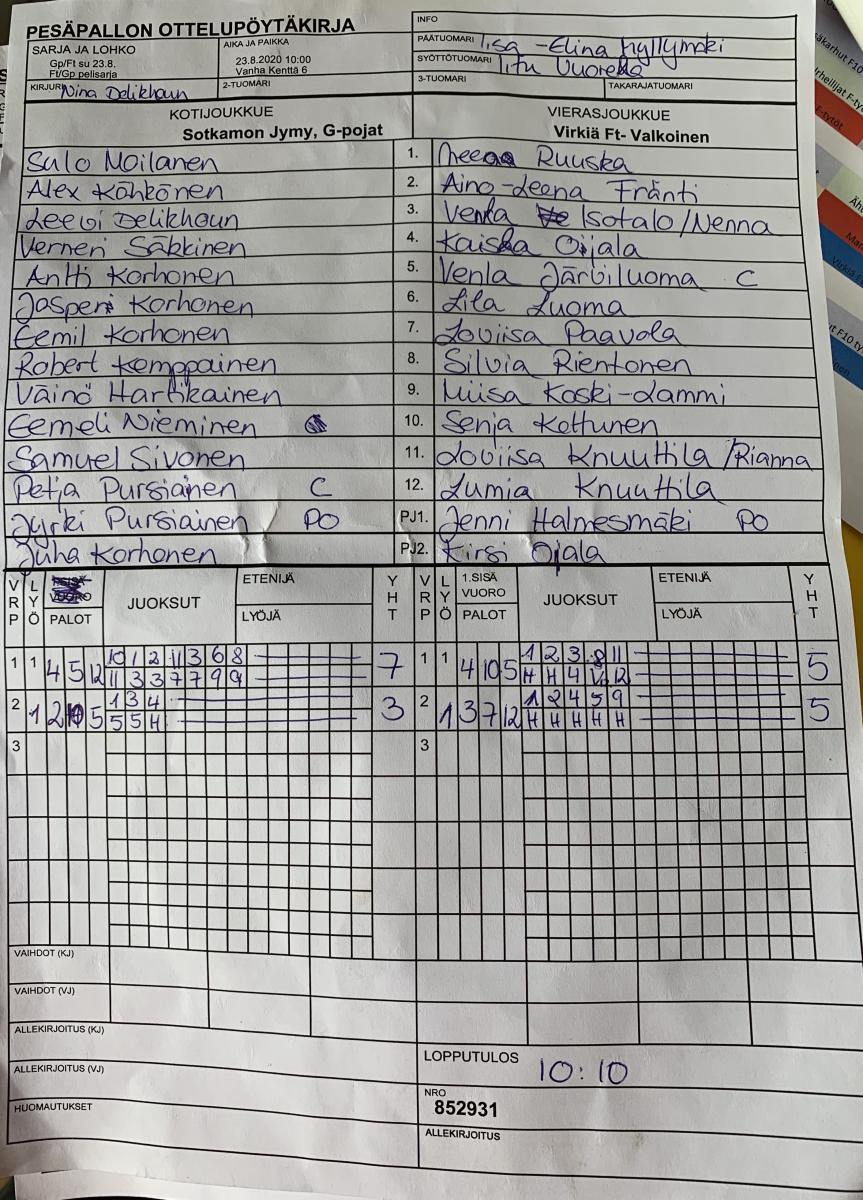 PESÄPALLON OTTELUPÖYTÄKIRJA
INFO
SARJA JA LOHKO
Gp/Ft su 23.8.
Ft/Gp pelisarja
AIKA JA PAIKKA
23.8.2020 10:00
Vanha Kenttä 6
PÄÄTUOMARI Iisa-Elina Hyllymäki
SYÖTTÖTUOMARI Iitu Vuorela
KIRJURI Nina Delikhoun
2-TUOMARI
3-TUOMARI
TAKARAJATUOMARI
KOTIJOUKKUE
Sotkamon Jymy, G-pojat
VIERASJOUKKUE
Virkiä Ft- Valkoinen
Sulo Moilanen 1. Neea Ruuska
Alex Kähkönen 2. Aino-Leena Fränti
Leevi Delikhoun 3. Venla Isotalo/Nenna
Verneri Säkkinen 4. Kaisla Ojala
Antti Korhonen 5. Venla Järviluoma C
Jasperi Korhonen 6. Lila Luoma
Eemil Korhonen 7. Loviisa Paavola
Robert Kemppainen 8. Silvia Rientonen
Väinö Hartikainen 9. Miisa Koski-Lammi
Eemeli Nieminen 10. Senja Kettunen
Samuel Sivonen 11. Loviisa Knuuttila /Rianna
Petja Pursiainen C 12. Lumia Knuuttila
Jyrki Pursiainen PO PJ1. Jenni Halmesmäki PO
Juha Korhonen PJ2. Kirsi Ojala
VRP LYÖ PALOT JUOKSUT ETENIJÄ LYÖJÄ YHT
VRP LYÖ 1.SISÄ VUORO PALOT JUOKSUT ETENIJÄ LYÖJÄ YHT
1 1 4 5 12 10 1 2 11 3 6 8 7
11 3 3 7 7 9 9
1 1 4 10 5 1 2 3 8 11 5
H H 4 12
2 1 2 5 1 3 4 3
5 5 H
2 1 3 7 12 1 2 4 5 9 5
H H H H H
3
3
VAIHDOT (KJ)
VAIHDOT (VJ)
ALLEKIRJOITUS (KJ)
ALLEKIRJOITUS (VJ)
HUOMAUTUKSET
LOPPUTULOS 10:10
NRO
852931
ALLEKIRJOITUS